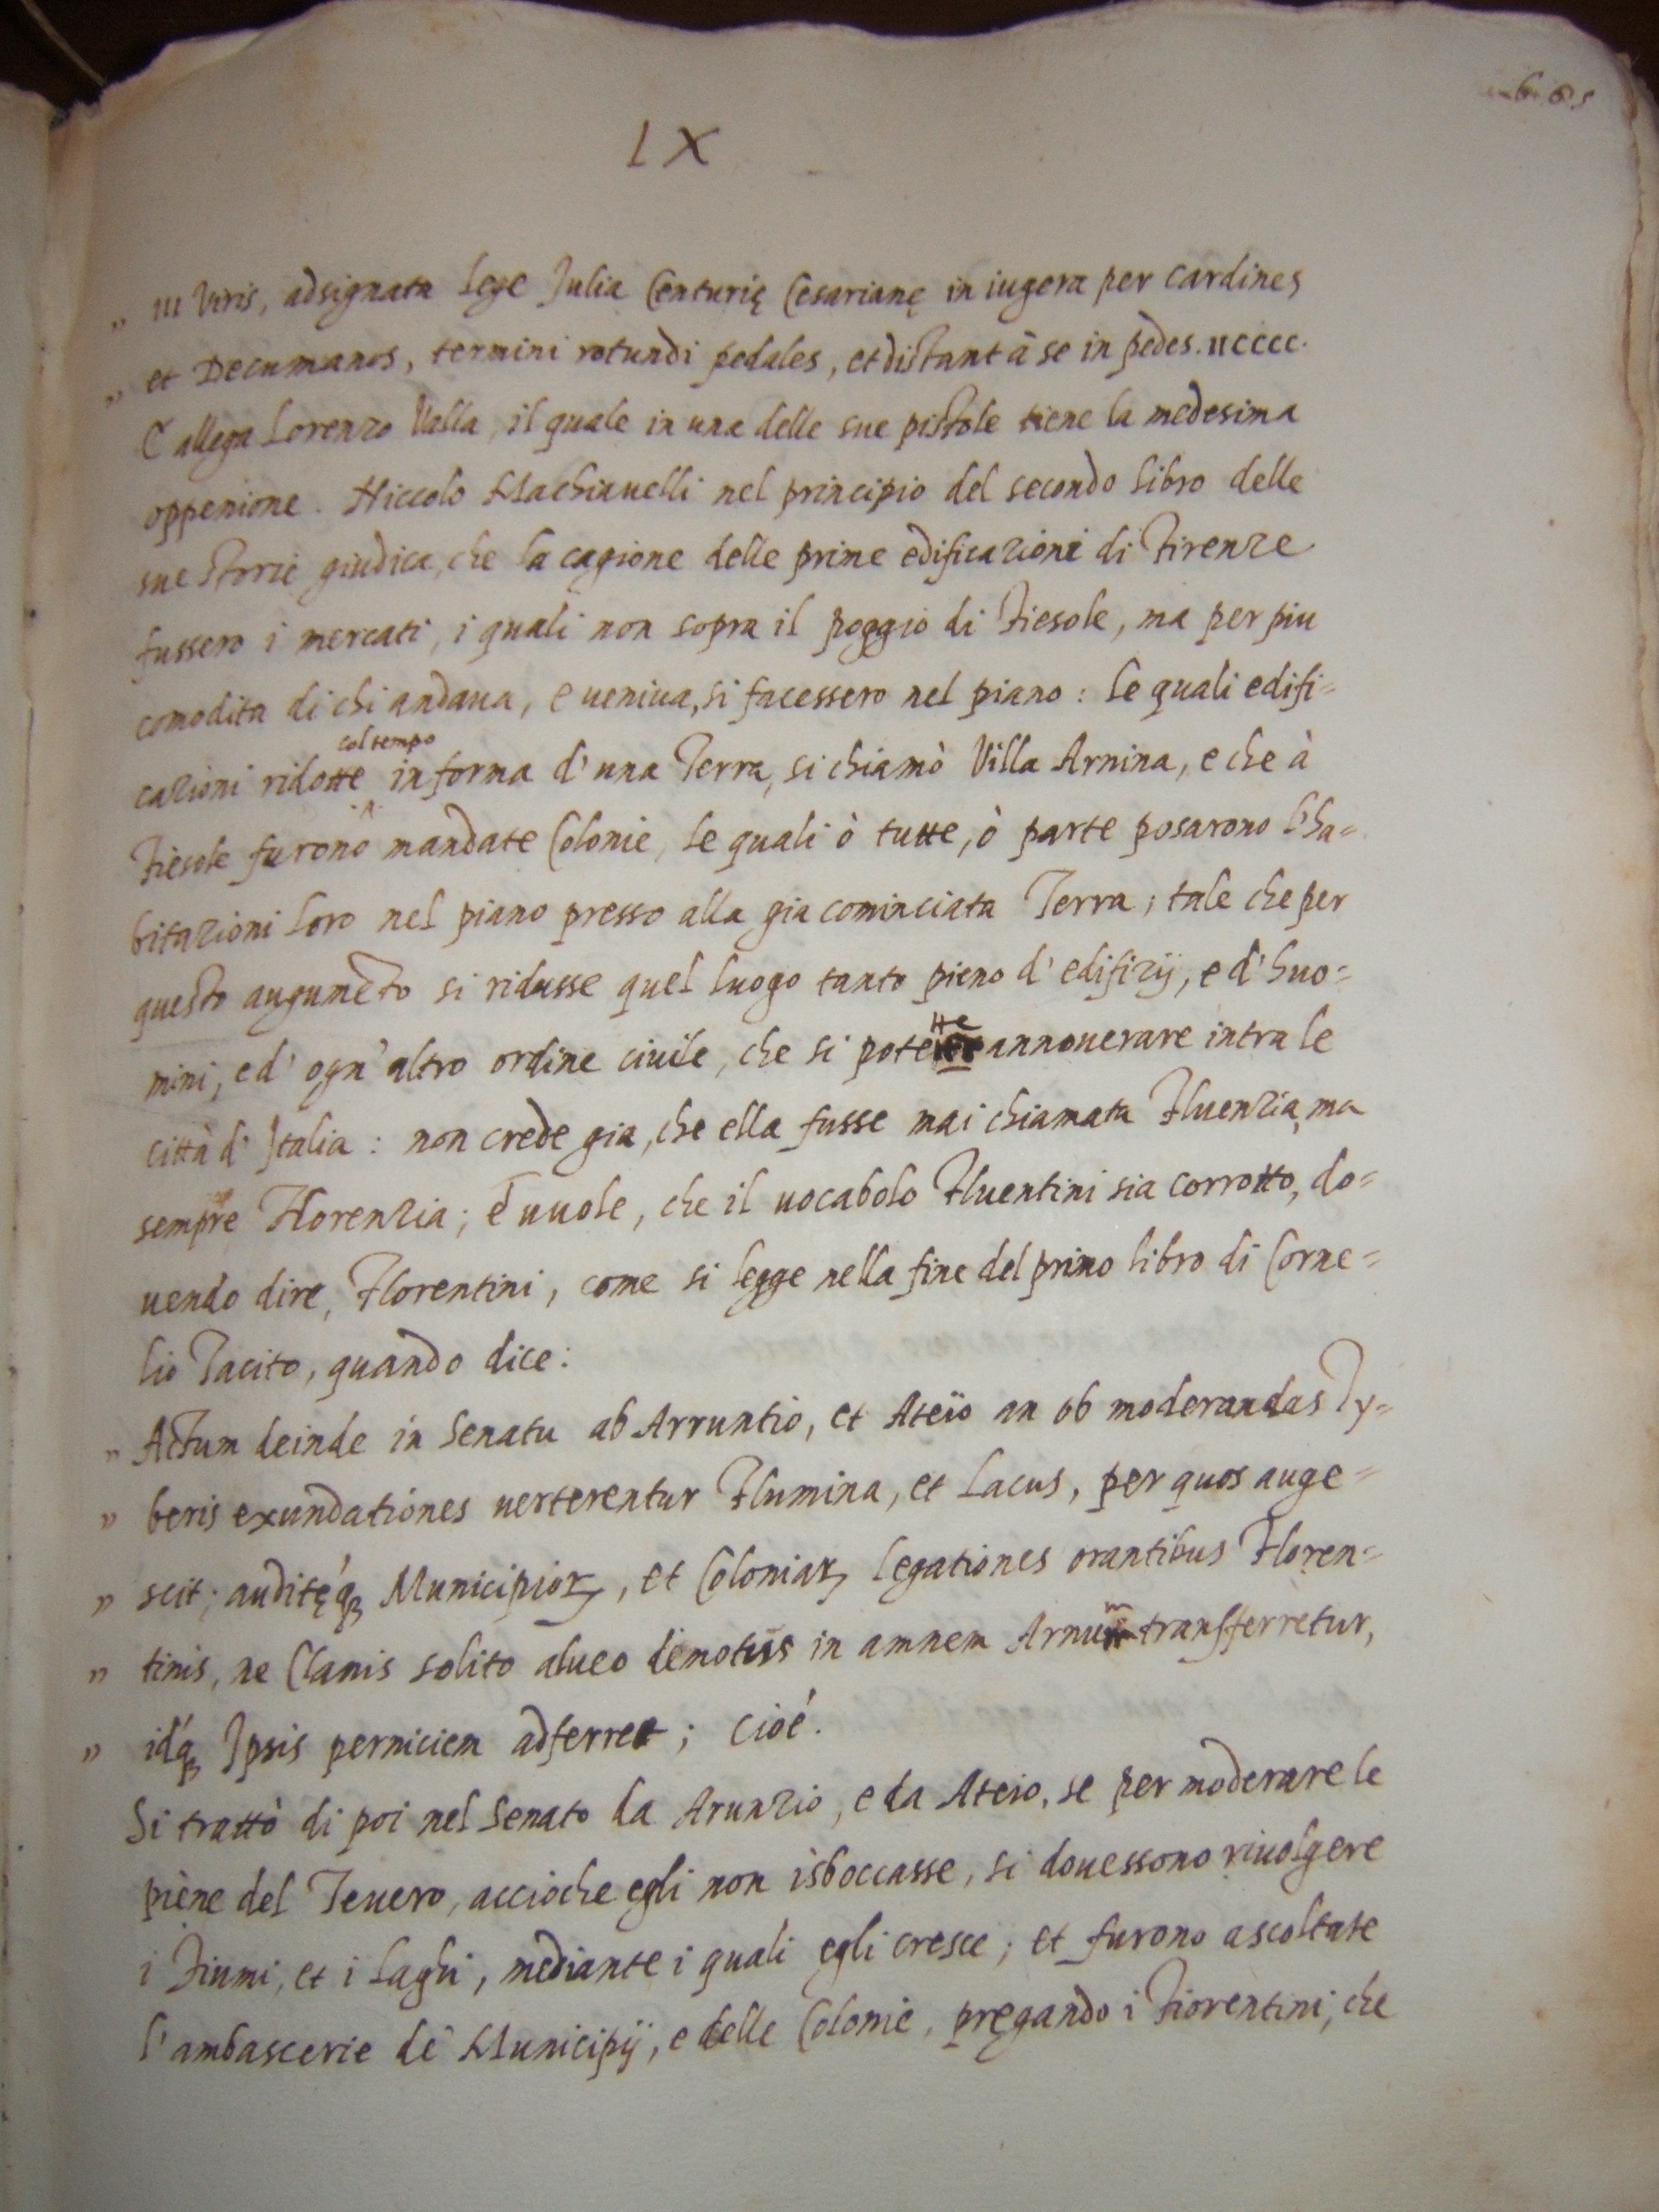 LX
„ III Viris, adsignata Lege Julia Centurię Cesarianę in iugera per cardines
„ et Decumanos, termini rotundi pedales, et distant à se in pedes. IICCCC.
E allega Lorenzo Valla, il quale in una delle sue pistole tiene la medesima
oppenione. Niccolo Machiauelli nel principio del secondo libro delle
sue Storie giudica, che la cagione delle prime edificazioni di Firenze
fussero i mercati, i quali non sopra il poggio di Fiesole, ma per piu
comodita di chi andaua, e ueniua, si facessero nel piano: le quali edifi=
col tempo
cazioni ridotte in forma d'una Terra, si chiamò Villa Arnina, e che à
Fiesole furono mandate Colonie, le quali ò tutte, ò parte posarono l'ha=
bitazioni loro nel piano presso alla gia cominciata Terra; tale che per
questo augumēto si ridusse quel luogo tanto pieno d'edifizij, e d'huo=
mini, e d'ogn'altro ordine ciuile, che si potette annouerare intra le
città d'Italia: non crede gia, che ella fusse mai chiamata Fluenzia, ma
sempre Florenzia; e uuole, che il uocabolo Fluentini sia corrotto, do=
uendo dire, Florentini, come si legge nella fine del primo libro di Corne=
lio Tacito, quando dice:
„ Actum deinde in Senatu ab Arruntio, et Ateio an ob moderandas Ty=
„ beris exundationes uerterentur Flumina, et Lacus, per quos auge=
„ scit; auditęq́ꝫ Municipioꝝ, et Coloniaꝝ legationes orantibus Floren=
„ tinis, ne Clanis solito alueo demotus in amnem Arnum transferretur,
„ idq́ꝫ Ipsis perniciem adferret; Cioé.
Si trattò di poi nel Senato da Arunzio, e da Ateio, se per moderare le
piene del Teuero, accioche egli non isboccasse, si douessono riuolgere
i Fiumi, et i Laghi, mediante i quali egli cresce; et furono ascoltate
l'ambascerie de Municipij, e delle Colonie, pregando i Fiorentini, che